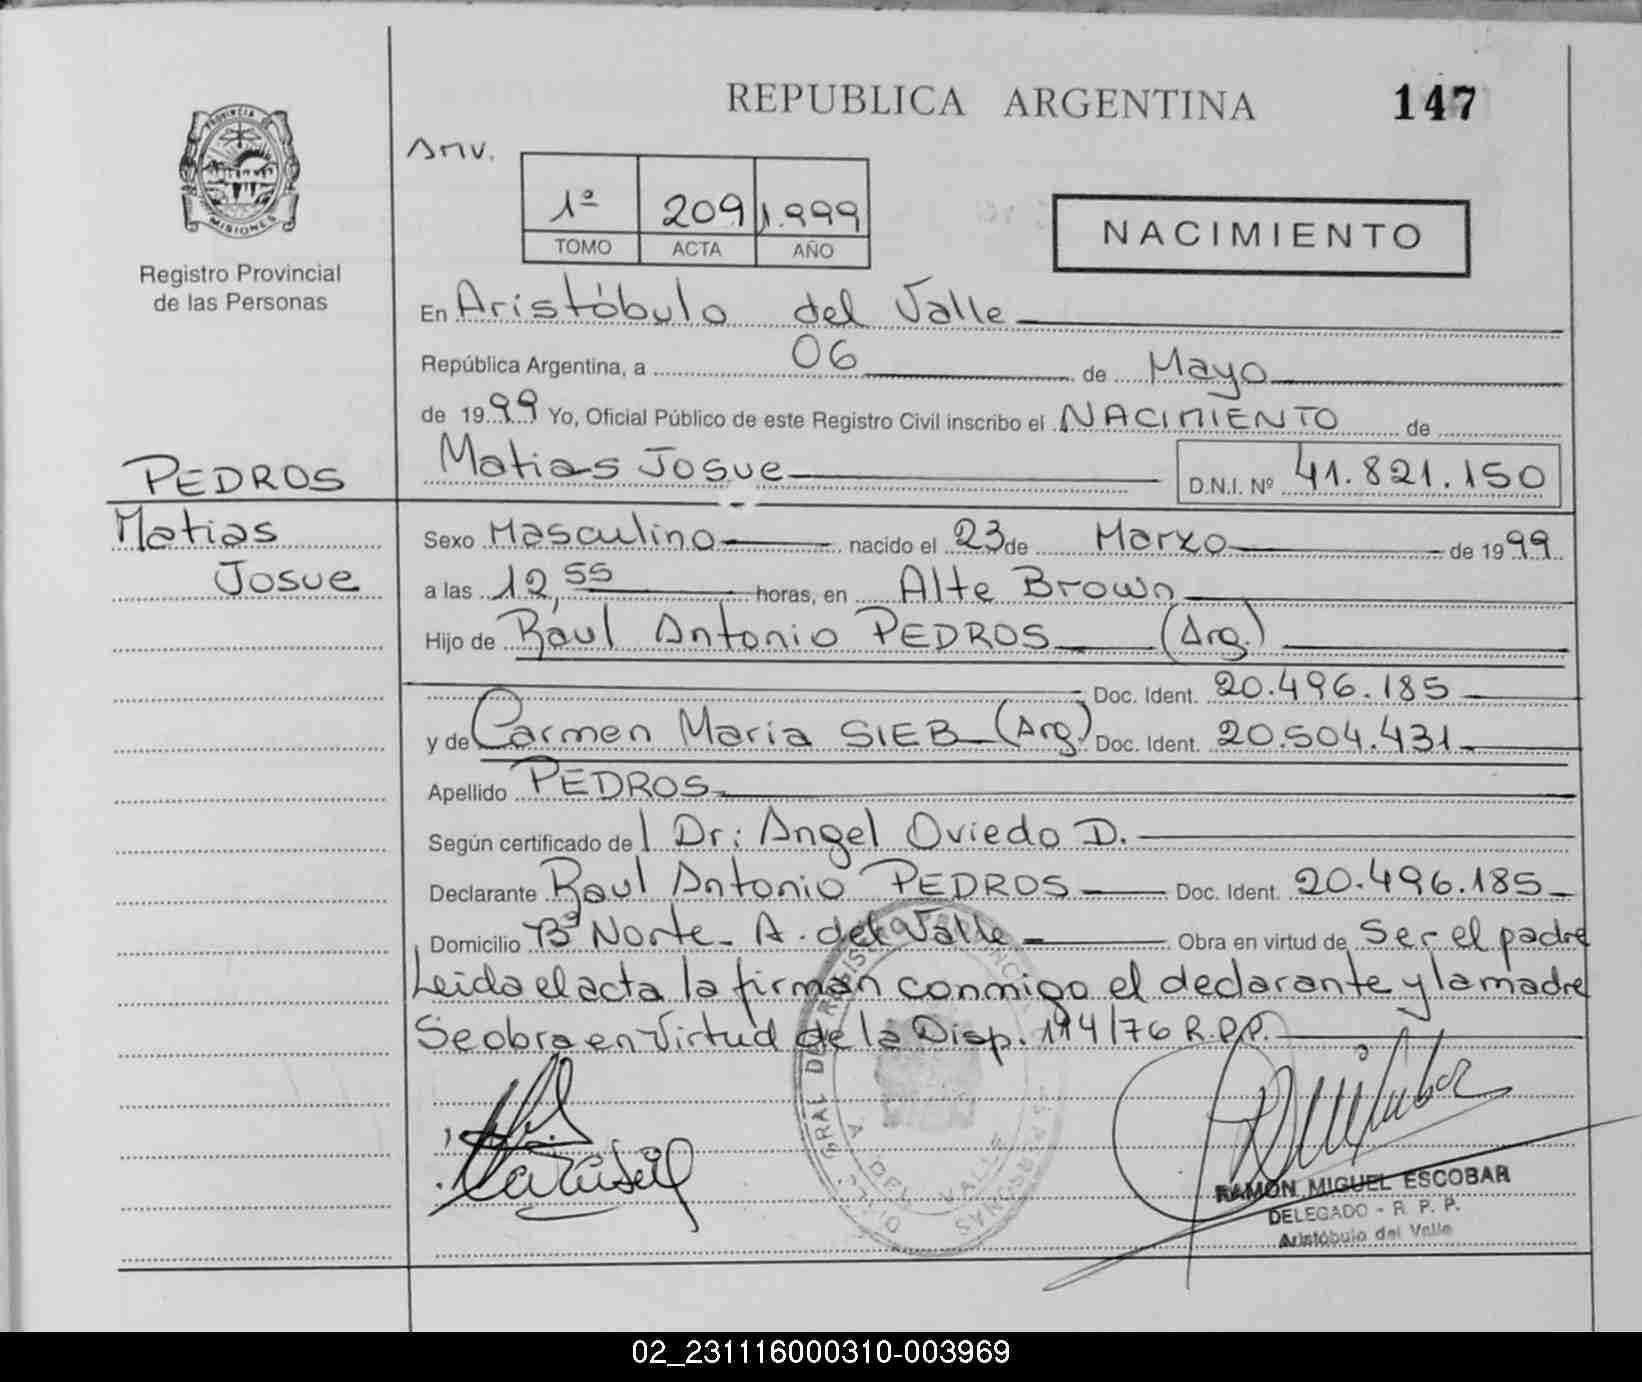 REPUBLICA ARGENTINA 147
PROVINCIA DE
MISIONES
Registro Provincial
de las Personas
1º 209 1.999
TOMO ACTA AÑO
NACIMIENTO
En Aristóbulo del Valle
República Argentina, a 06 de Mayo
de 1999 Yo, Oficial Público de este Registro Civil inscribo el NACIMIENTO de
PEDROS
Matias Josue D.N.I. Nº 41.821.150
Matias
Josue
Sexo Masculino nacido el 23 de Marzo de 1999
a las 12,55 horas, en Alte Brown
Hijo de Raul Antonio PEDROS (Arg.)
Doc. Ident. 20.496.185
y de Carmen Maria SIEB (Arg.) Doc. Ident. 20.504.431
Apellido PEDROS
Según certificado del Dr: Angel Oviedo D.
Declarante Raul Antonio PEDROS Doc. Ident. 20.496.185
Domicilio Bº Norte - A. del Valle Obra en virtud de Ser el padre
Leida el acta la firman conmigo el declarante y la madre
Se obra en Virtud de la Disp. 114/76 R.P.P.
RAMON MIGUEL ESCOBAR
DELEGADO - R. P. P.
Aristóbulo del Valle
02_231116000310-003969